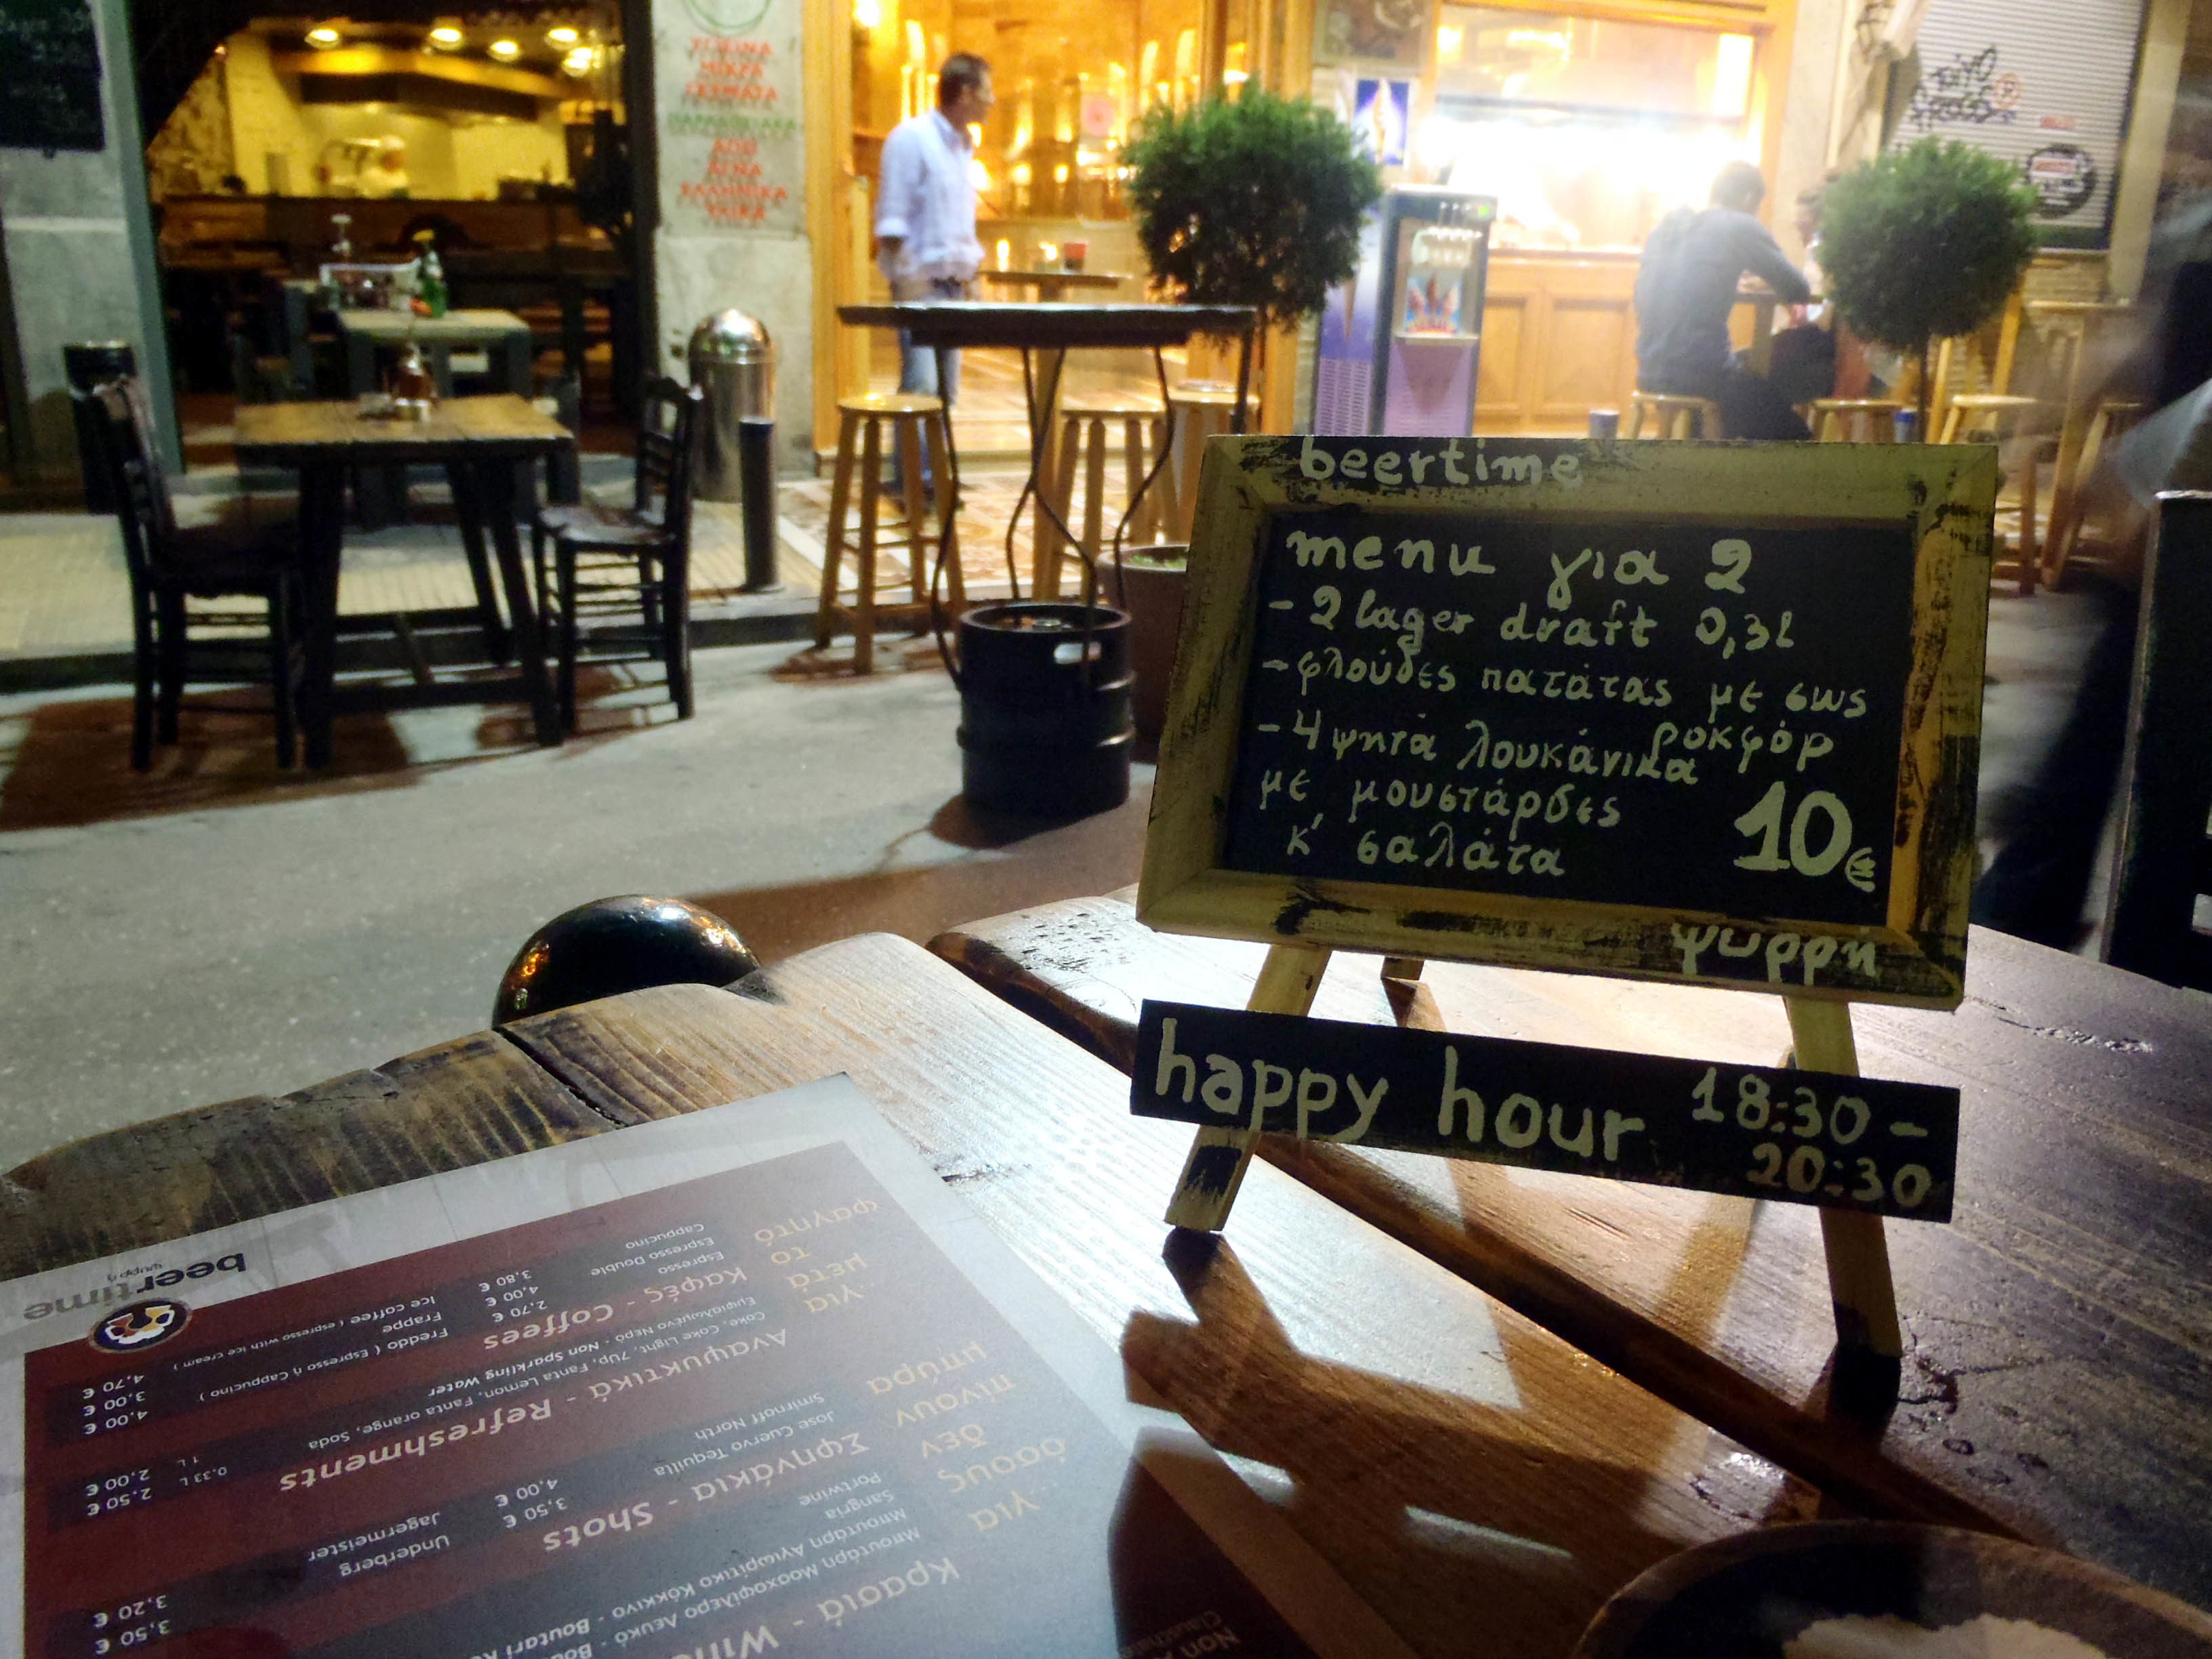 ΑΠΟ
ΑΓΝΑ
ΕΛΛΗΝΙΚΑ
ΥΛΙΚΑ
beertime
menu για 2
- 2 lager draft 0,3l
- φλούδες πατάτας με σως
ροκφόρ
- 4 ψητά λουκάνικα
με μουστάρδες
κ' σαλάτα
10€
ψυρρή
happy hour 18:30 -
20:30
beertime
ψυρρή
για
μετά
το
φαγητό
Καφές - Coffees
Espresso 2,70 €
Espresso Double 4,00 €
Cappucino 3,80 €
Freddo ( Espresso ή Cappucino ) 4,00 €
Frappe 3,00 €
Ice coffee ( espresso with ice cream ) 4,70 €
Αναψυκτικά - Refreshments
Coke, Coke Light, 7Up, Fanta Lemon, Fanta orange, Soda 0,33 L 2,50 €
Εμφιαλωμένο Νερό - Non Sparkling Water 1 L 2,00 €
για
όσους
δεν
πίνουν
μπύρα
Σφηνάκια - Shots
Jose Cuervo Tequilla 3,50 €
Smirnoff North 4,00 €
Underberg 3,50 €
Jagermeister 3,20 €
Κρασιά - Wine
Μπουτάρη Μοσχοφίλερο Λευκό
Μπουτάρη Αγιωρίτικο Κόκκινο - Boutari
Sangria
Portwine